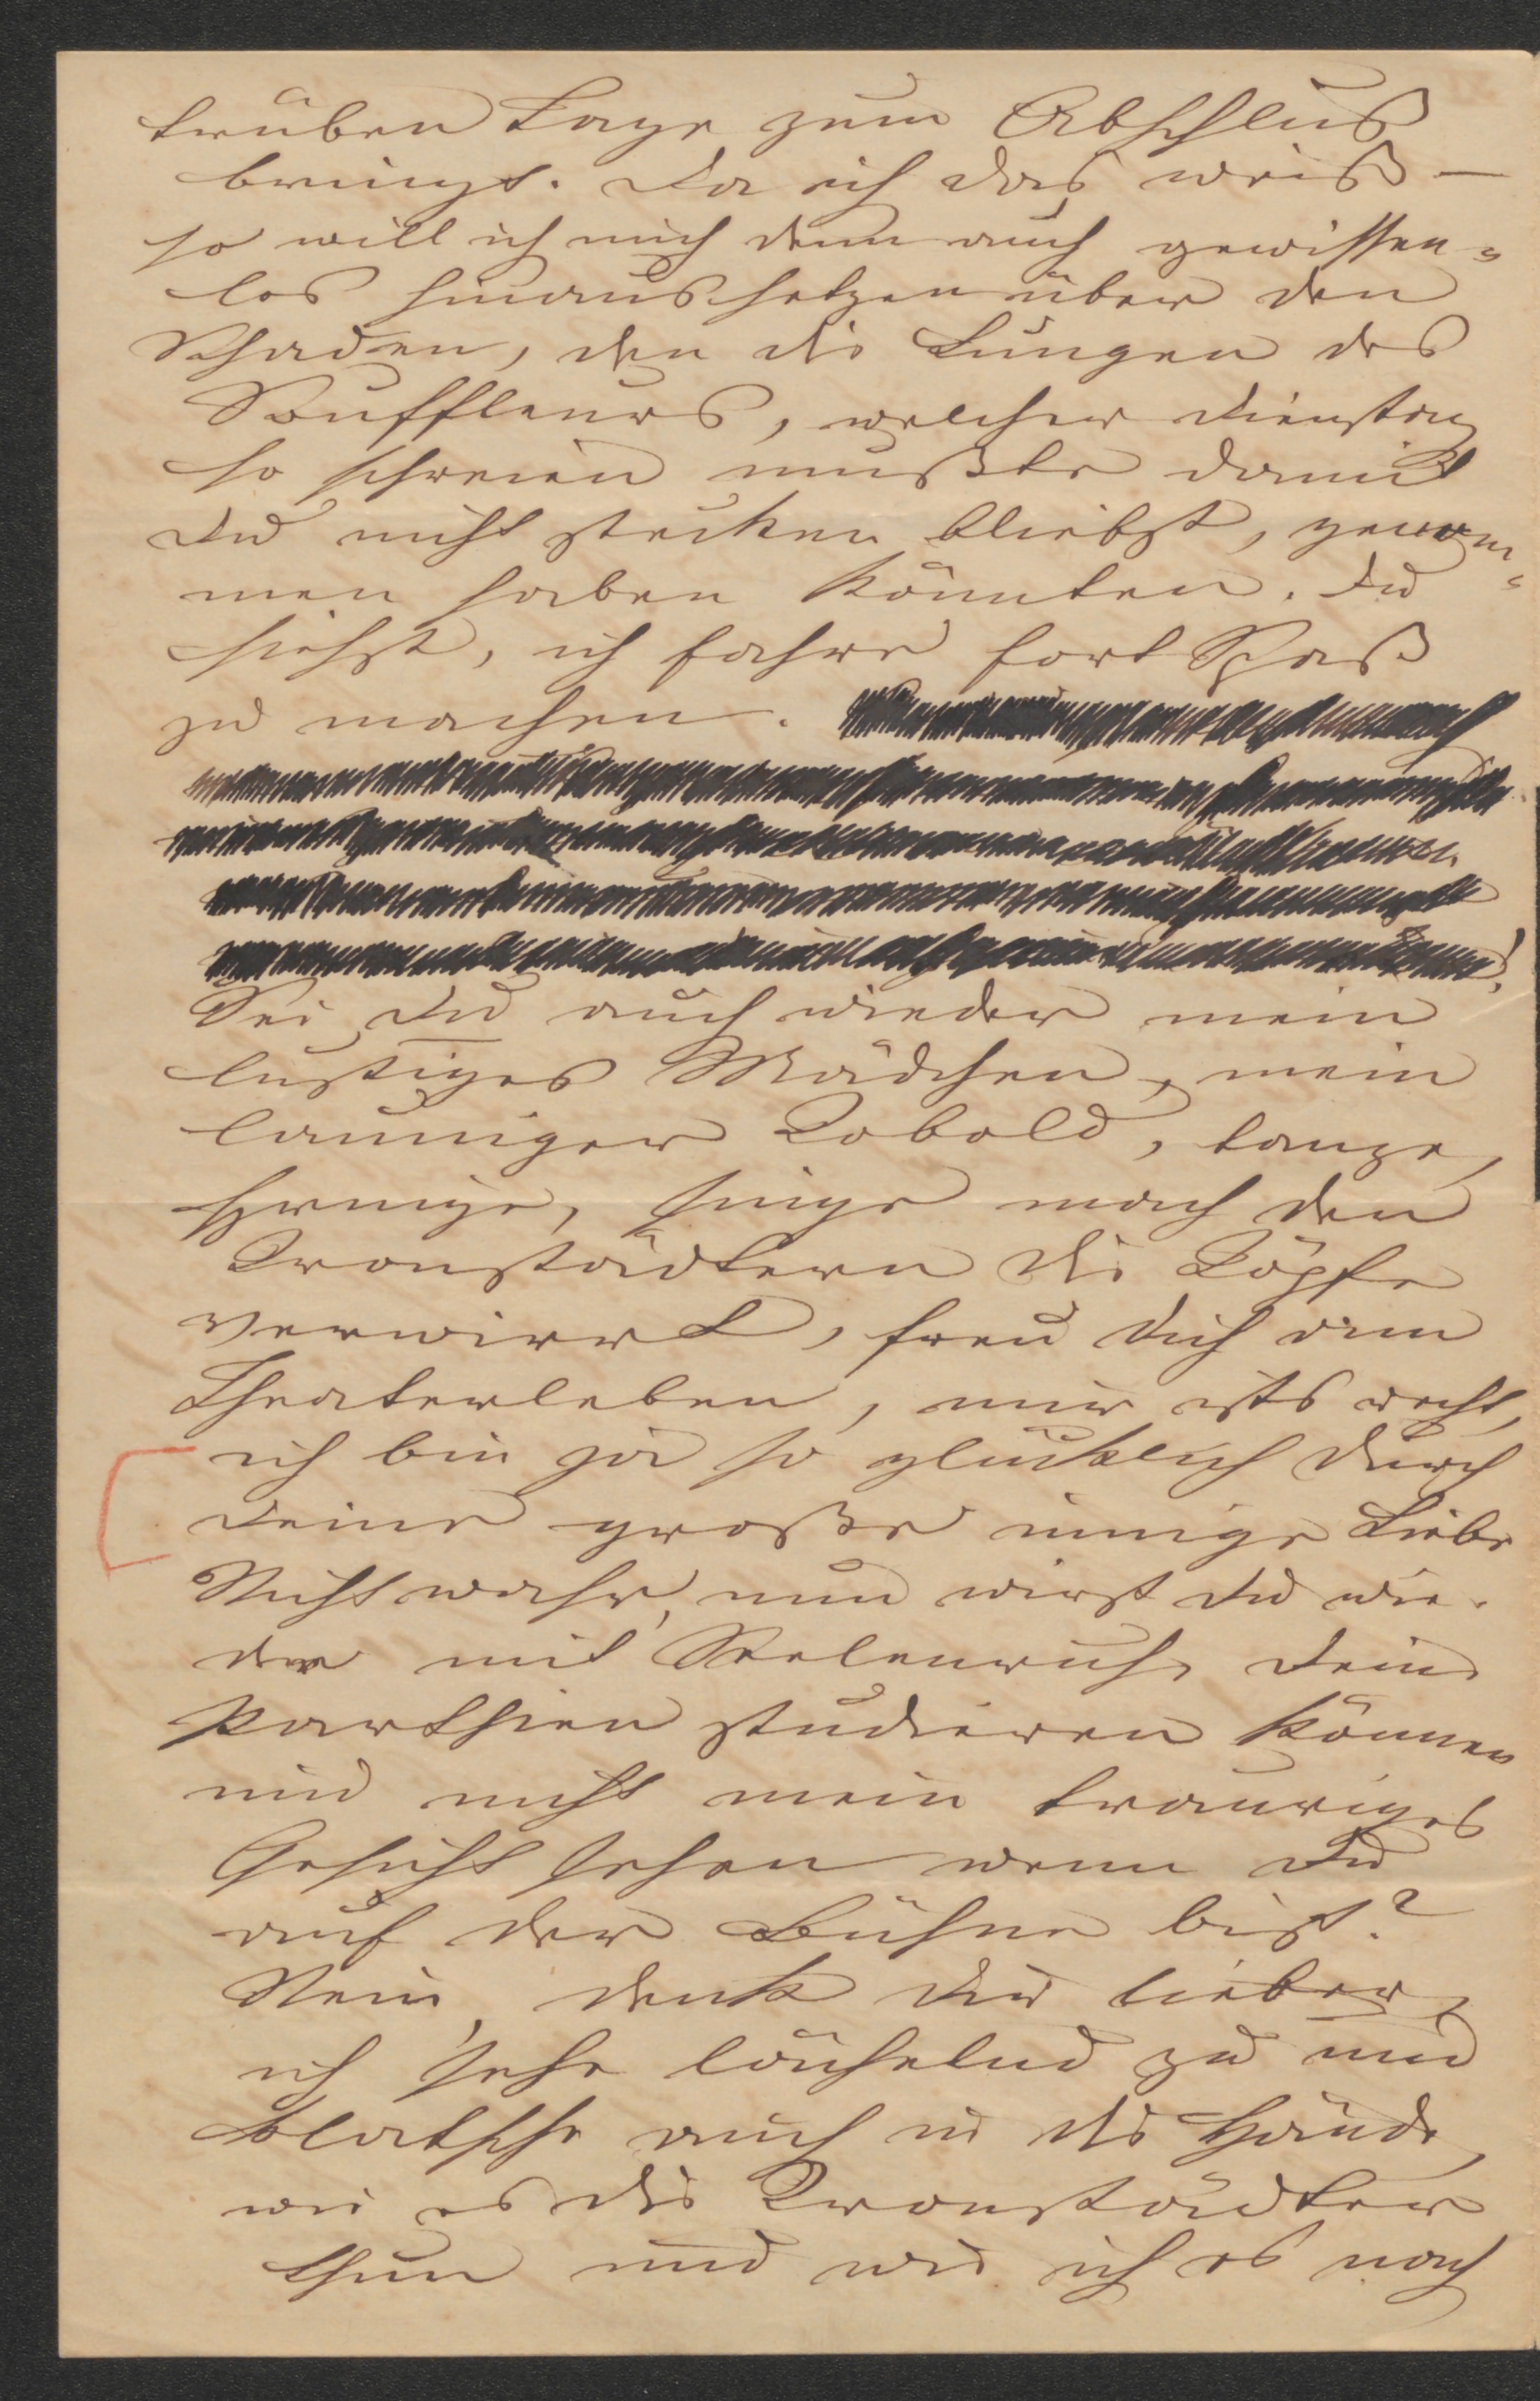 trüben Tage zum Abschluß
bringt. Da ich das weiß —
so will ich mich denn auch gewissen=
los hinaussetzen über den
Schaden, den die Lungen des
Souffleurs, welcher Dienstag
so schreien mußte damit
Du nicht stecken bliebst, genom=
men haben könnten. Du
siehst, ich fahre fort Spaß
zu machen.
Sei Du auch wieder mein
lustiges Mädchen, mein
launiger Kobold, tanze,
springe, singe mach den
Kronstädtern die Köpfe
verwirrt, freu Dich am
Theaterleben, mir ists recht,
ich bin ja so glücklich durch
Deine große innige Liebe
Nicht wahr, nun wirst Du wie-
der mit Seelenruhe Deine
Parthien studieren können
und nicht mein trauriges
Gesicht sehen wenn Du
auf der Bühne bist?
Nein, denk Dir lieber,
ich sehe lächelnd zu und
klatsche auch in die Hände,
wie es die Kronstädter
thun und wie ich es noch